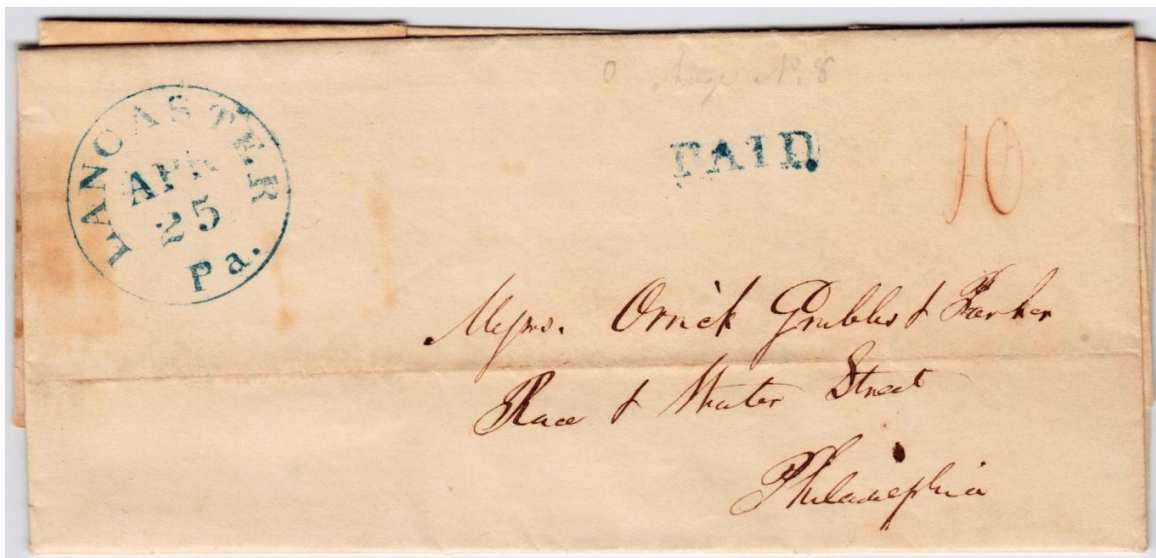 LANCASTER
APR
25
Pa.
PAID
10
Messrs. Orrick Grubbs & Parker
Race & Water Street
Philadelphia